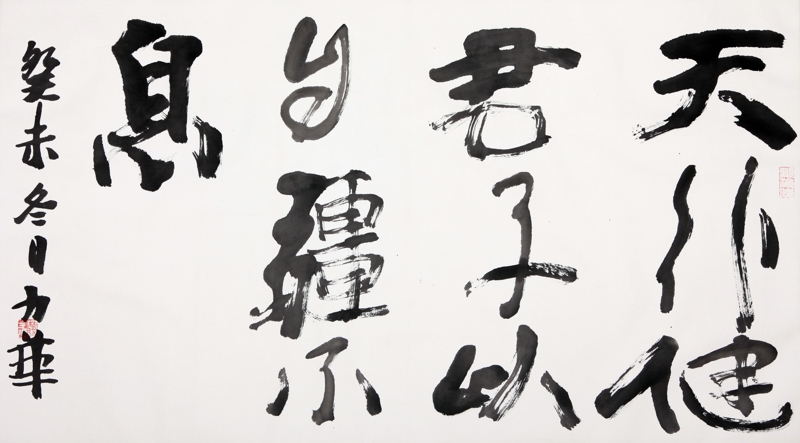 天行健
君子以
自疆不
息
癸未冬日力華